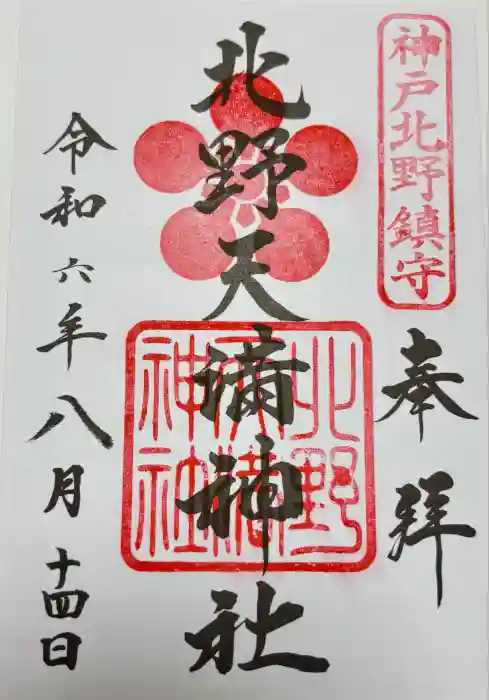 神戸北野鎮守
奉拝
北野天満神社
北野天満神社
令和六年八月十四日